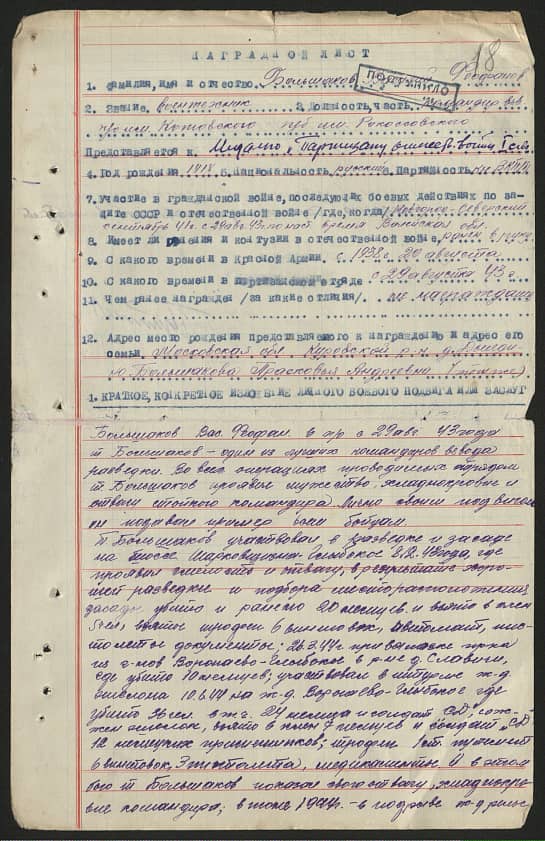 18
НАГРАДНОЙ ЛИСТ
1. Фамилия, имя и отчество Большаков Феофанов
ПОЛУЧИЛО
2. Звание 3. Должность, часть командир взв.
им. Котовского п/б им. Рокоссовского
Представляется к Медаль "Партизану отечеств. войны" I степ.
4. Год рождения 1918 5. Национальность русский Партийность чл. ВЛКСМ
7. Участие в гражданской войне, последующих боевых действиях по за-
щите СССР и отечественной войне /где, когда/
сентябрь 41г. с 29 авг. 43г. по наст. время Вилейская обл.
8. Имеет ли ранения и контузии в отечественной войне, ранен в руку
9. С какого времени в Красной Армии. с 1938г. 20 августа
10. С какого времени в партизанском отряде с 29 августа 43г.
11. Чем ранее награжден /за какие отличия/. не награждался
12. Адрес место рождения представляемого к награждению и адрес его
семьи. Московская обл. Куровской р-н д.
Большакова Прасковья Андреевна
1. КРАТКОЕ, КОНКРЕТНОЕ ИЗЛОЖЕНИЕ ЛИЧНОГО БОЕВОГО ПОДВИГА ИЛИ ЗАСЛУГ
Большаков Вас. Феофан. в п/о с 29 авг. 43 года
т. Большаков - один из лучших командиров взвода
разведки. Во всех операциях проводимых отрядом
т. Большаков проявил мужество, хладнокровие и
отвагу стойкого командира. Лично своим
он подавал пример всем бойцам.
т. Большаков участвовал в разведке и засаде
на шоссе Шарковщизна-Глыбокое 8.12.43 года, где
проявил смелость и отвагу, в результате хоро-
шей разведки и подбора месторасположения
засады убито и ранено 20 немцев и взято в плен
5 чел., взяты трофеи 6 винтовок, автомат, пис-
толеты документы; 26.3.44г. при
из г-нов Воропаево-Глыбокое в р-не д.
где убито 10 немцев; участвовал в штурме ж.д.
эшелона 10.6.44 на ж-д. Воропаево-Глыбокое где
убито 36 чел. в т.ч. 24 немца и солдат "СД", сож-
жен эшелон, взято в плен 7 немцев и солдат "СД"
12 немецких трофеи 1 ст. пулемет
6 винтовок, 3 пистолета, медикаменты. И в этом
бою т. Большаков показал свою отвагу, хладнокро-
вие командира; в июне 1944г. - в подрыве ж-д рельс